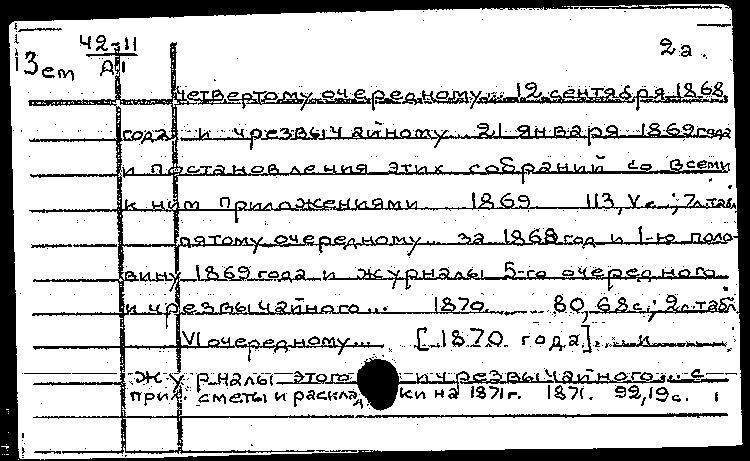 42-11 2а.
13ст Д1
четвертому очередному... 12 сентября 1868
года и чрезвычайному... 21 января 1869 года
и постановления этих собраний со всеми
к ним приложениями 1869. 113, V с.; 7л.табл
пятому очередному... за 1868 год и 1-ю поло
вину 1869 года и журналы 5-го очередного
и чрезвычайного... 1870. 80, 68 с.; 2л.табл.
VI очередному... [1870 года]... и
журналы этого и чрезвычайного... с
прил. сметы и раскладки на 1871г. 1871. 92, 19с.